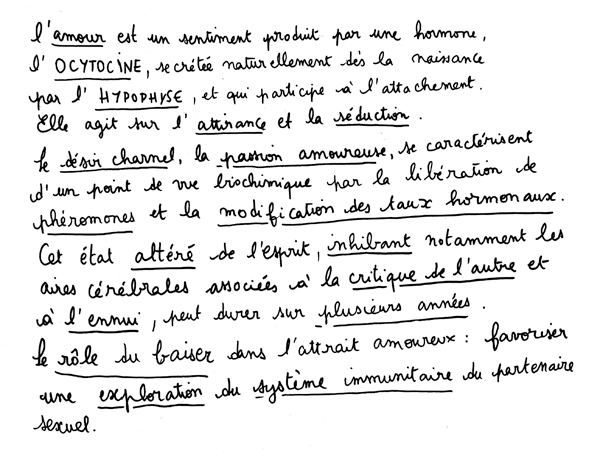 l'amour est un sentiment produit par une hormone,
l'OCYTOCINE, secrétée naturellement dès la naissance
par l'HYPOPHYSE, et qui participe à l'attachement.
Elle agit sur l'attirance et la séduction.
Le désir charnel, la passion amoureuse, se caractérisent
d'un point de vue biochimique par la libération de
phéromones et la modification des taux hormonaux.
Cet état altéré de l'esprit, inhibant notamment les
aires cérébrales associées à la critique de l'autre et
à l'ennui, peut durer sur plusieurs années.
Le rôle du baiser dans l'attrait amoureux : favoriser
une exploration du système immunitaire du partenaire
sexuel.